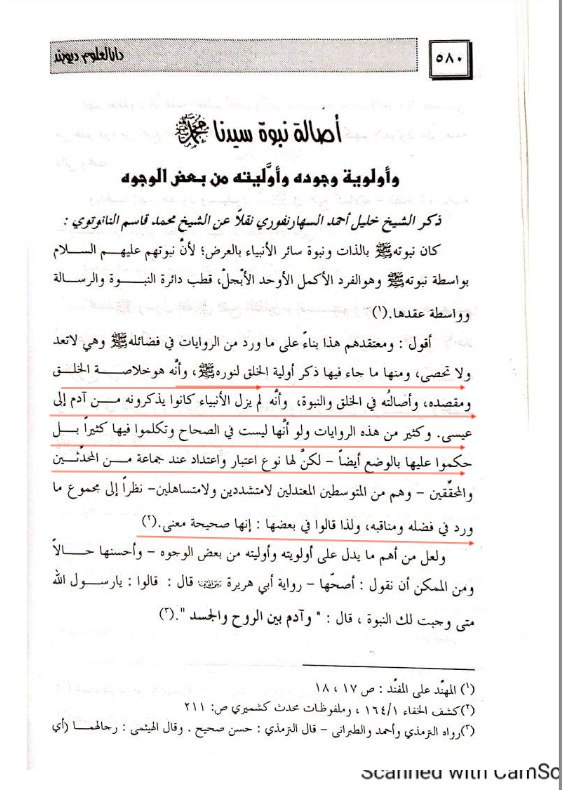 ٥٨٠
دارالعلوم ديوبند
أصالة نبوة سيدنا محمد ﷺ
وأولوية وجوده وأوَّليته من بعض الوجوه
ذكر الشيخ خليل أحمد السهارنفوري نقلاً عن الشيخ محمد قاسم النانوتوي :
كان نبوتهﷺ بالذات ونبوة سائر الأنبياء بالعرض؛ لأنّ نبوتهم عليهم السلام
بواسطة نبوتهﷺ وهوالفرد الأكمل الأوحد الأبْجلْ، قطب دائرة النبوة والرسالة
وواسطة عقدها.(١)
أقول : ومعتقدهم هذا بناءً على ما ورد من الروايات في فضائلهﷺ وهي لاتعد
ولا تحصى، ومنها ما جاء فيها ذكر أولية الخلق لنورهﷺ، وأنَّه هوخلاصة الخلق
ومقصده، وأصالتُه في الخلق والنبوة، وأنَّه لم يزل الأنبياء كانوا يذكرونه من آدم إلى
عيسى. وكثير من هذه الروايات ولو أنَّها ليست في الصحاح وتكلموا فيها كثيراً بل
حكموا عليها بالوضع أيضاً – لكنَّ لها نوع اعتبار واعتداد عند جماعة من المحدّثين
والمحقّقين – وهم من المتوسطين المعتدلين لامتشددين ولامتساهلين– نظراً إلى مجموع ما
ورد في فضله ومناقبه، ولذا قالوا في بعضها : إنها صحيحة معنى.(٢)
ولعل من أهم ما يدل على أولويته وأوليته من بعض الوجوه – وأحسنها حالاً
ومن الممكن أن نقول : أصحّها – رواية أبي هريرة رضي الله عنه قال : قالوا : يارسول الله
متى وجبت لك النبوة ، قال : " وآدم بين الروح والجسد ".(٣)
(١) المهنّد على المفنّد : ص ١٧ ، ١٨
(٢)كشف الخفاء ١٦٤/١ ، وملفوظات محدث كشميري ص: ٢١١
(٣)رواه الترمذي وأحمد والطبراني – قال الترمذي : حسن صحيح . وقال الهيثمي : رجالهما (أي
Scanned with CamSc